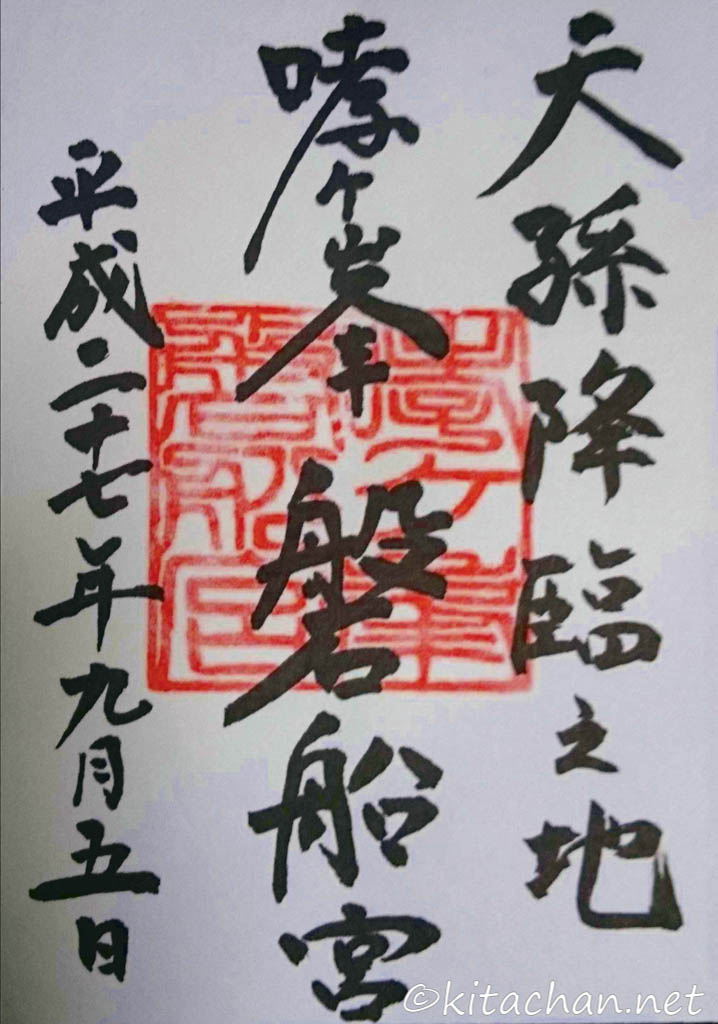 天孫降臨之地
哮ヶ峯 磐船宮
平成二十七年九月五日
©kitachan.net